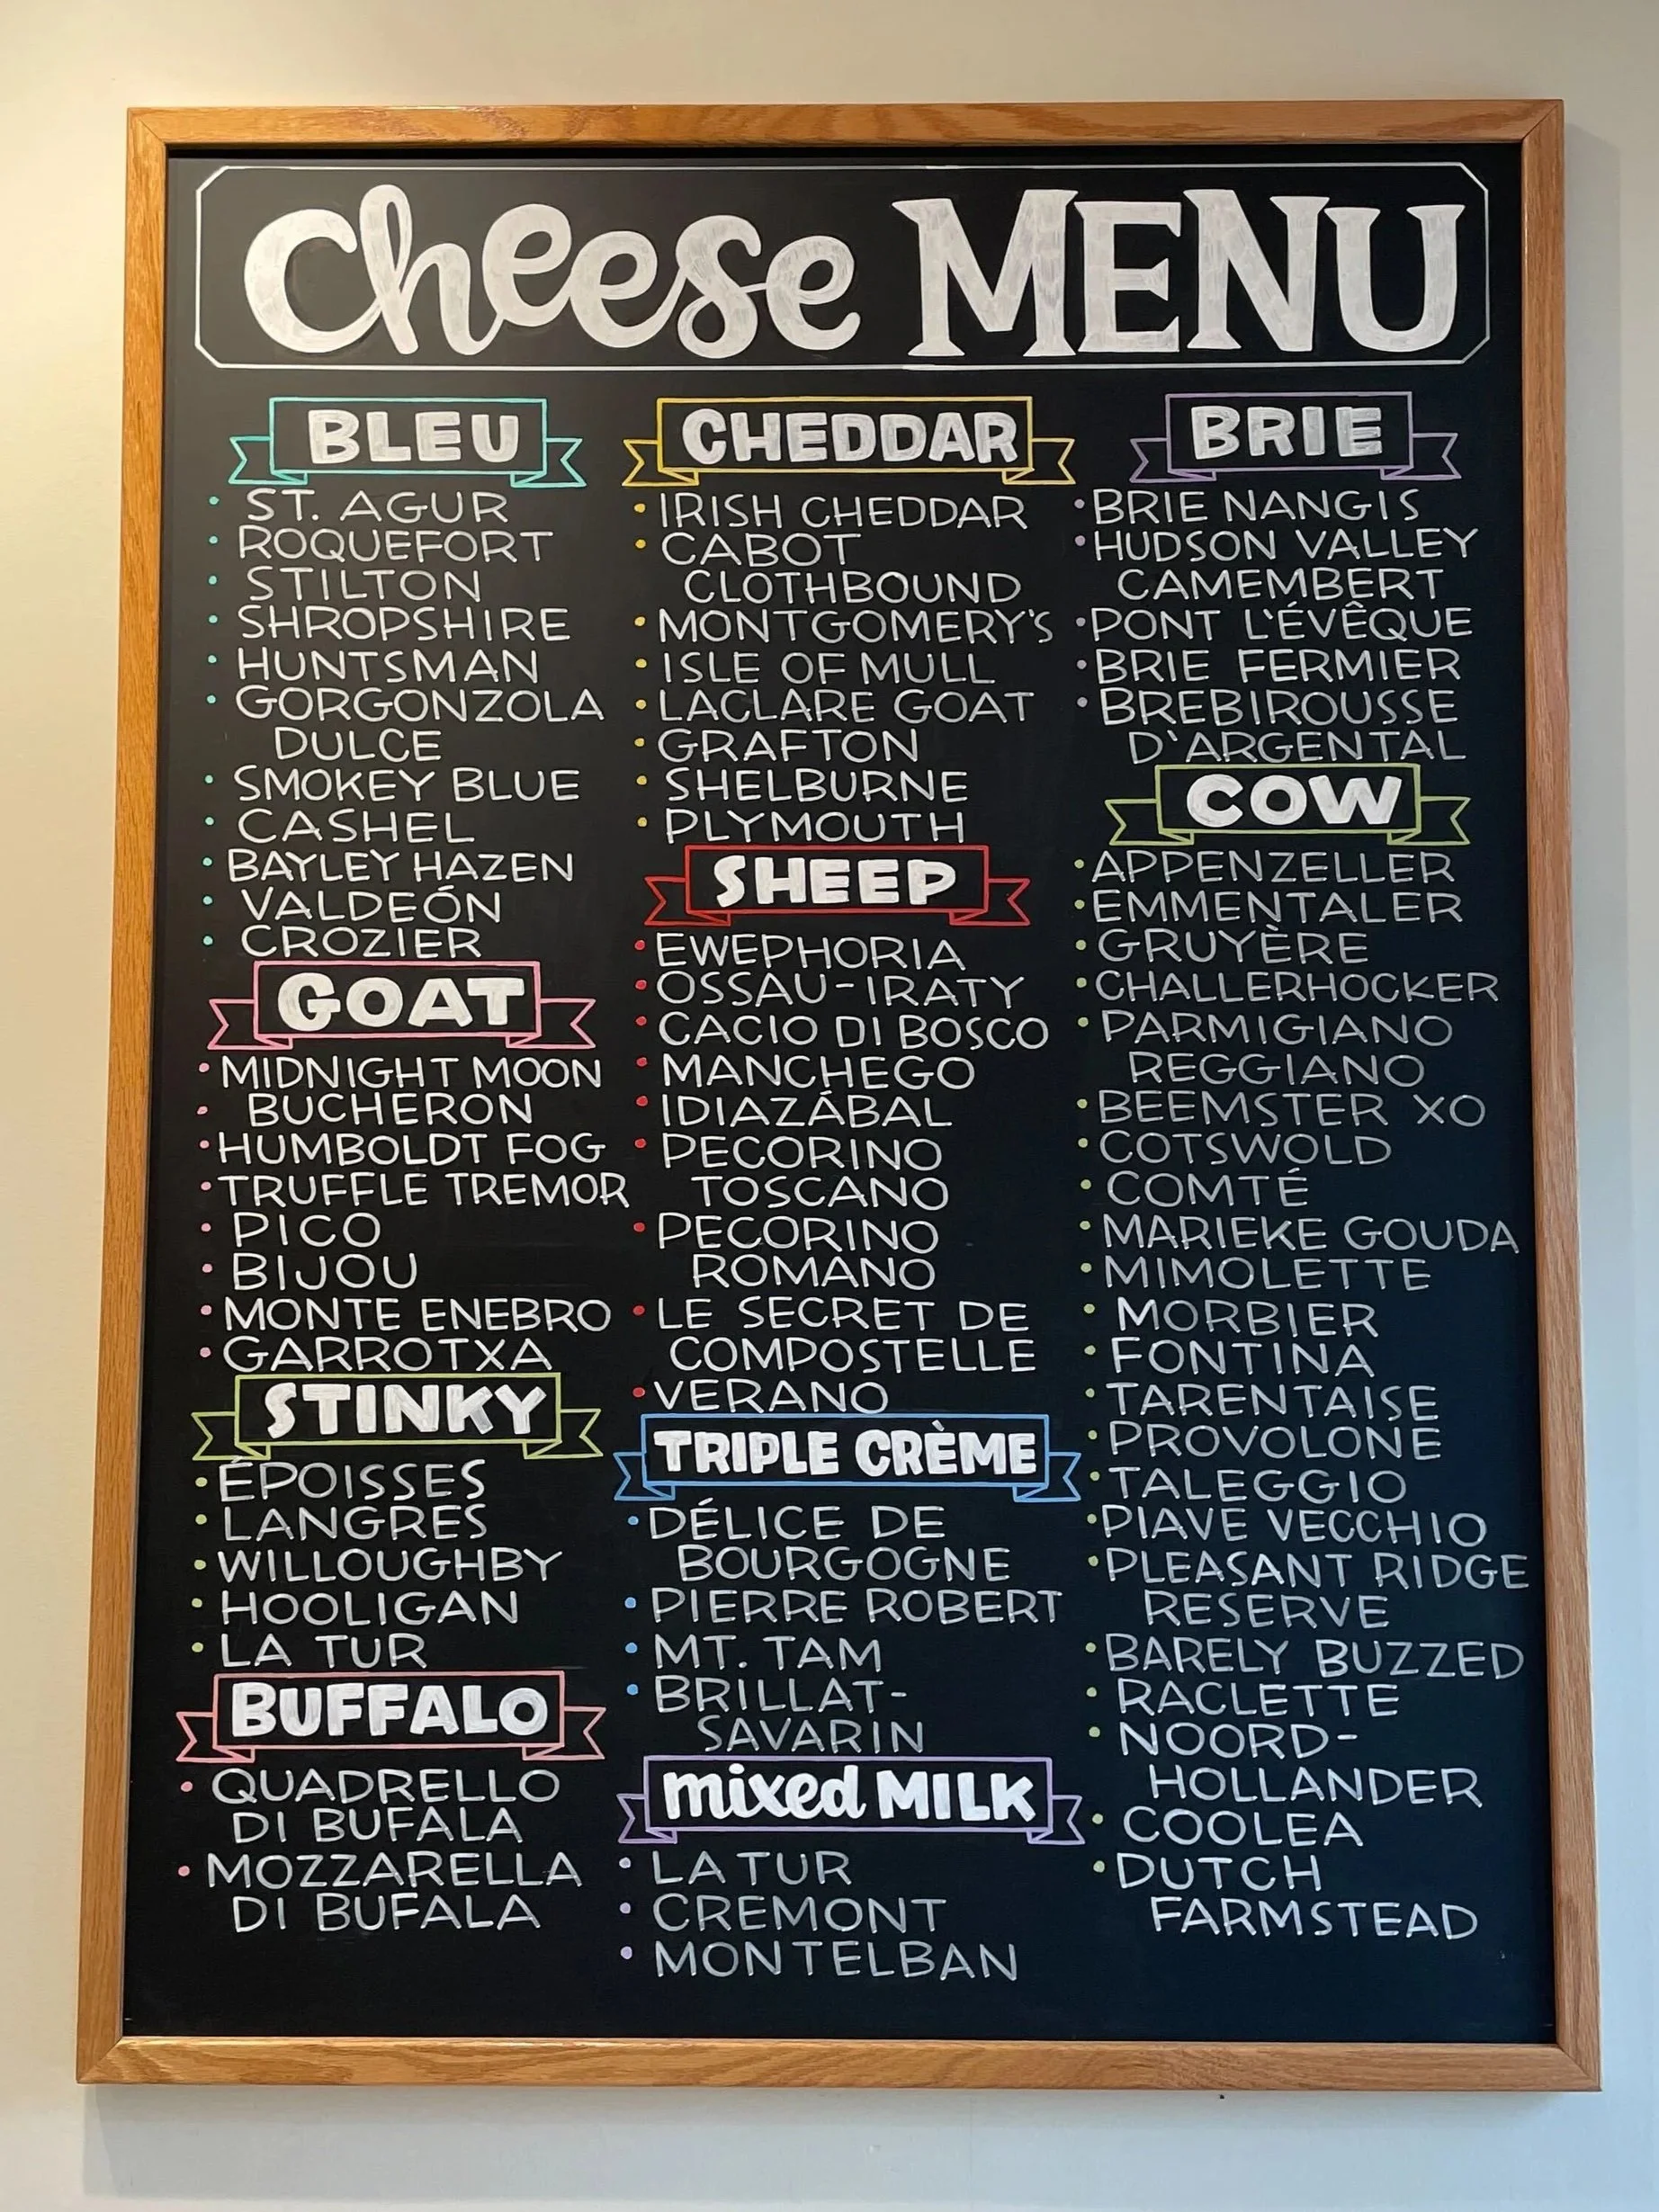 Cheese MENU
BLEU
• ST. AGUR
• ROQUEFORT
• STILTON
• SHROPSHIRE
• HUNTSMAN
• GORGONZOLA
DULCE
• SMOKEY BLUE
• CASHEL
• BAYLEY HAZEN
• VALDEÓN
• CROZIER
GOAT
• MIDNIGHT MOON
• BUCHERON
• HUMBOLDT FOG
• TRUFFLE TREMOR
• PICO
• BIJOU
• MONTE ENEBRO
• GARROTXA
STINKY
• ÉPOISSES
• LANGRES
• WILLOUGHBY
• HOOLIGAN
• LA TUR
BUFFALO
• QUADRELLO
DI BUFALA
• MOZZARELLA
DI BUFALA
CHEDDAR
• IRISH CHEDDAR
• CABOT
CLOTHBOUND
• MONTGOMERY'S
• ISLE OF MULL
• LACLARE GOAT
• GRAFTON
• SHELBURNE
• PLYMOUTH
SHEEP
• EWEPHORIA
• OSSAU-IRATY
• CACIO DI BOSCO
• MANCHEGO
• IDIAZÁBAL
• PECORINO
TOSCANO
• PECORINO
ROMANO
• LE SECRET DE
COMPOSTELLE
• VERANO
TRIPLE CRÈME
• DÉLICE DE
BOURGOGNE
• PIERRE ROBERT
• MT. TAM
• BRILLAT-
SAVARIN
mixed MILK
• LA TUR
• CREMONT
• MONTELBAN
BRIE
• BRIE NANGIS
• HUDSON VALLEY
CAMEMBERT
• PONT L'ÉVÊQUE
• BRIE FERMIER
• BREBIROUSSE
D'ARGENTAL
COW
• APPENZELLER
• EMMENTALER
• GRUYÈRE
• CHALLERHOCKER
• PARMIGIANO
REGGIANO
• BEEMSTER XO
• COTSWOLD
• COMTÉ
• MARIEKE GOUDA
• MIMOLETTE
• MORBIER
• FONTINA
• TARENTAISE
• PROVOLONE
• TALEGGIO
• PIAVE VECCHIO
• PLEASANT RIDGE
RESERVE
• BARELY BUZZED
• RACLETTE
• NOORD-
HOLLANDER
• COOLEA
• DUTCH
FARMSTEAD